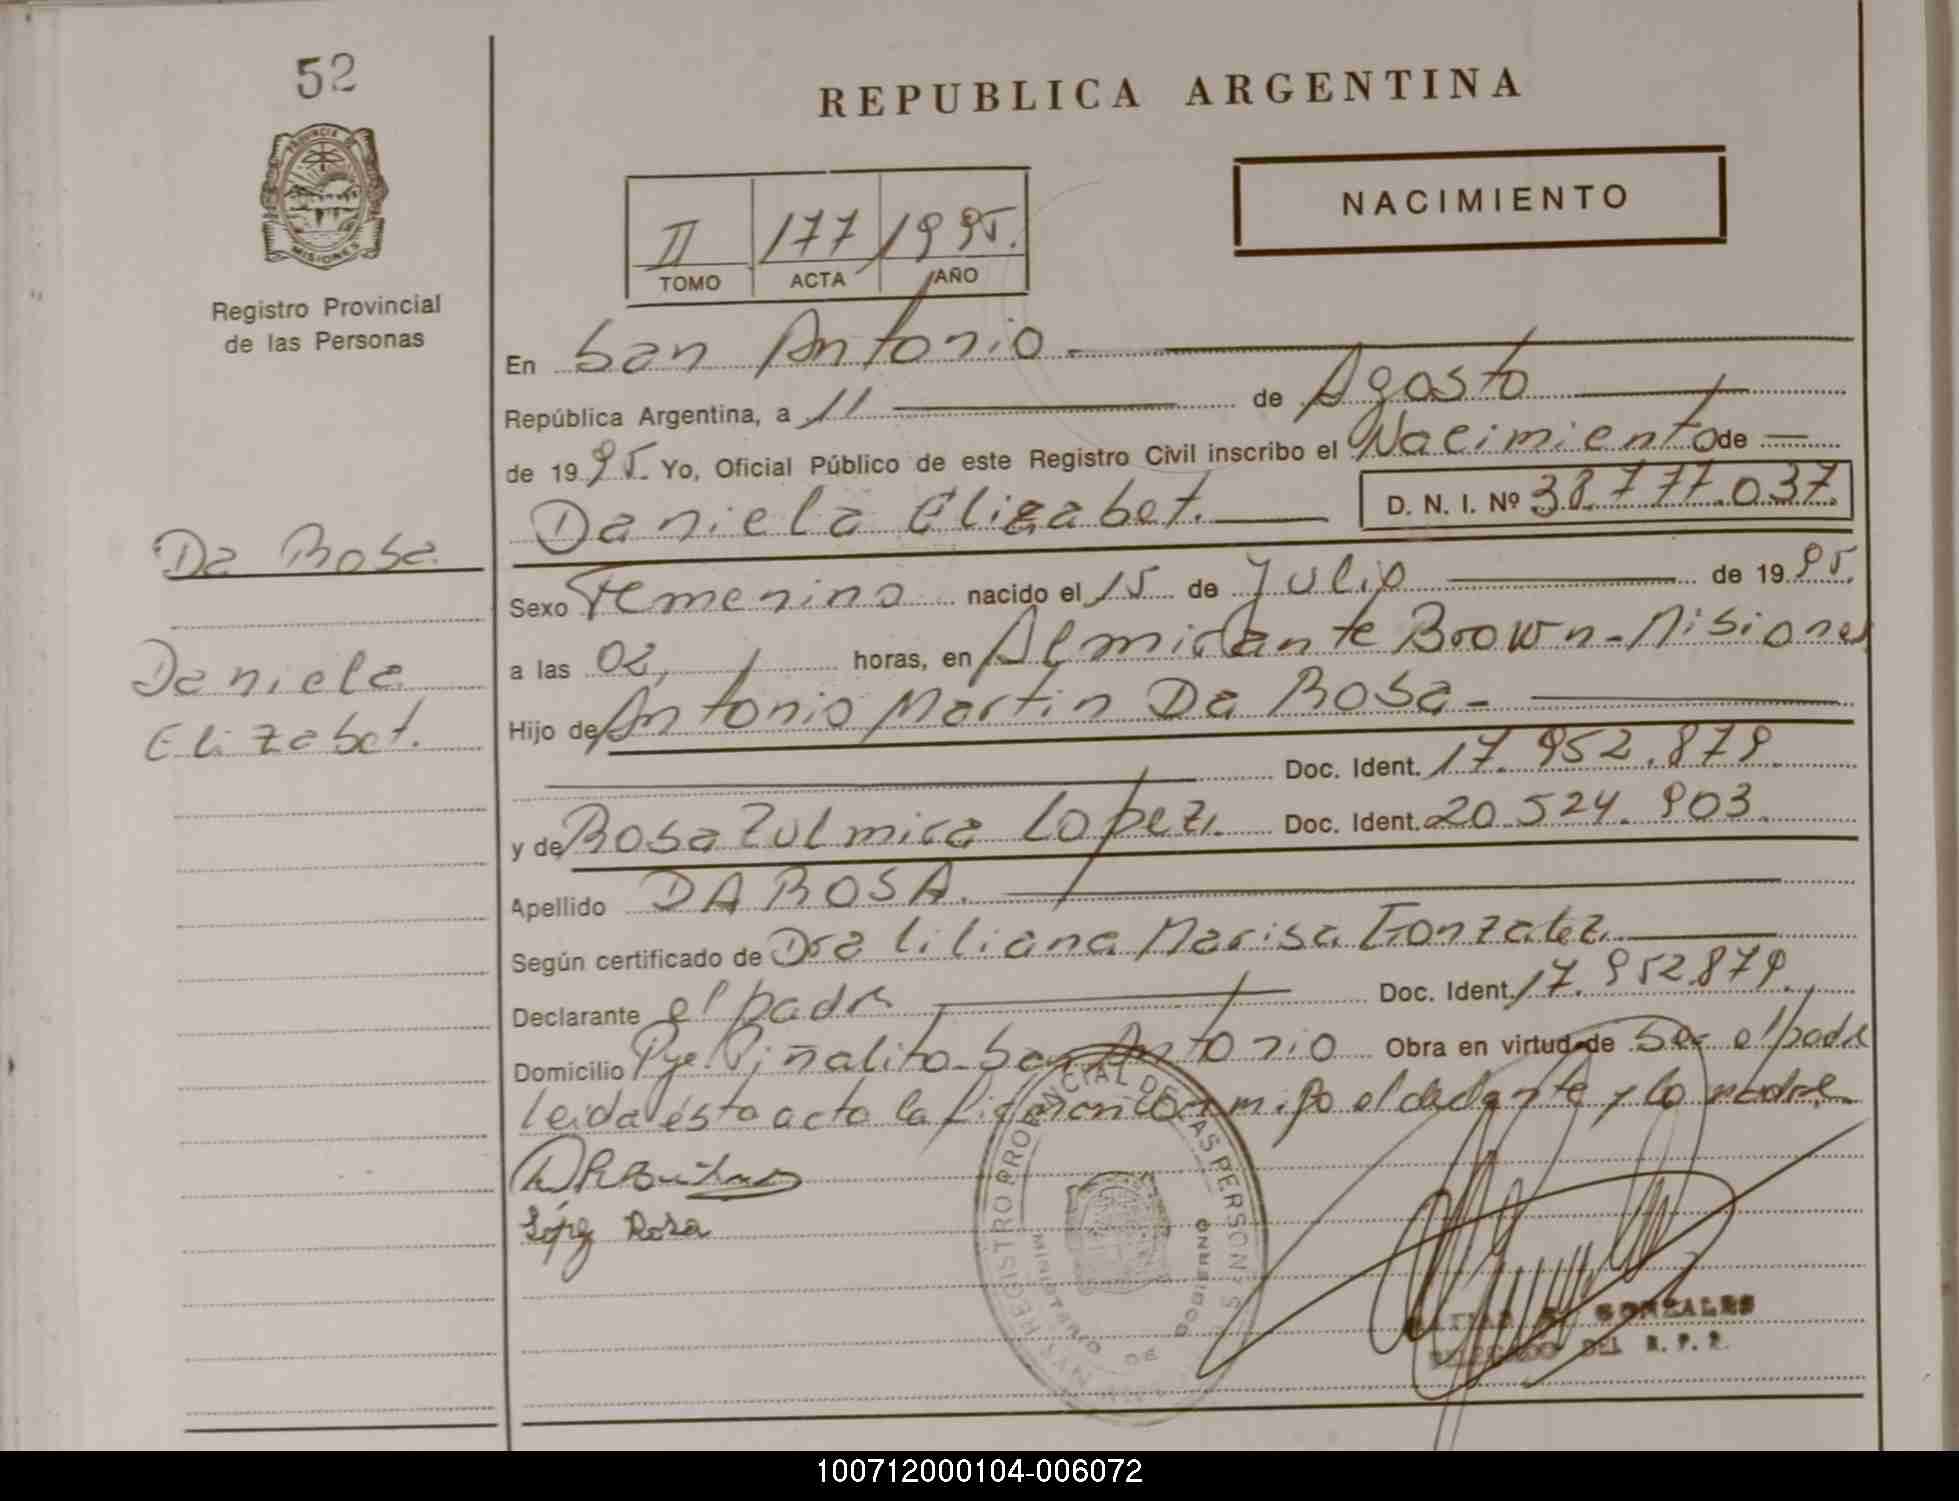 52
PROVINCIA DE
MISIONES
Registro Provincial
de las Personas
Da Rosa
Daniela
Elizabet.
REPUBLICA ARGENTINA
NACIMIENTO
II 177 1995.
TOMO ACTA AÑO
En San Antonio -
República Argentina, a 11 de Agosto
de 1995. Yo, Oficial Público de este Registro Civil inscribo el Nacimiento de
Daniela Elizabet. D. N. I. Nº 38.777.037.
Sexo Femenino nacido el 15 de Julio de 1995.
a las 02, horas, en Almirante Brown - Misiones
Hijo de Antonio Martin Da Rosa -
Doc. Ident. 17.952.879.
y de Rosa Zulmira Lopez. Doc. Ident. 20.524.903.
Apellido DA ROSA.
Según certificado de Dra Liliana Marisa Gonzalez.
Declarante el padre Doc. Ident. 17.952.879.
Domicilio Pje Piñalito - San Antonio Obra en virtud de Ser el padre
leida ésta acta la firman conmigo el declarante y la madre
López Rosa
REGISTRO PROVINCIAL DE LAS PERSONAS
MINISTERIO DE GOBIERNO
GONZALES
DELEGADO DEL R. P. P.
100712000104-006072